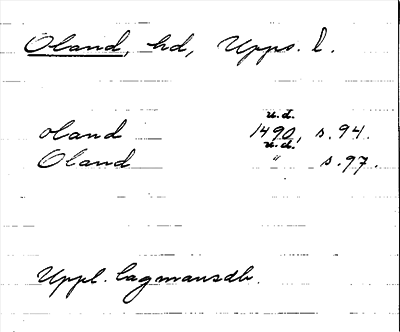 Oland, hd, Upps. l.
u.d.
oland 1490, s. 94.
u.d.
Oland " s. 97.
Uppl. lagmansdb.